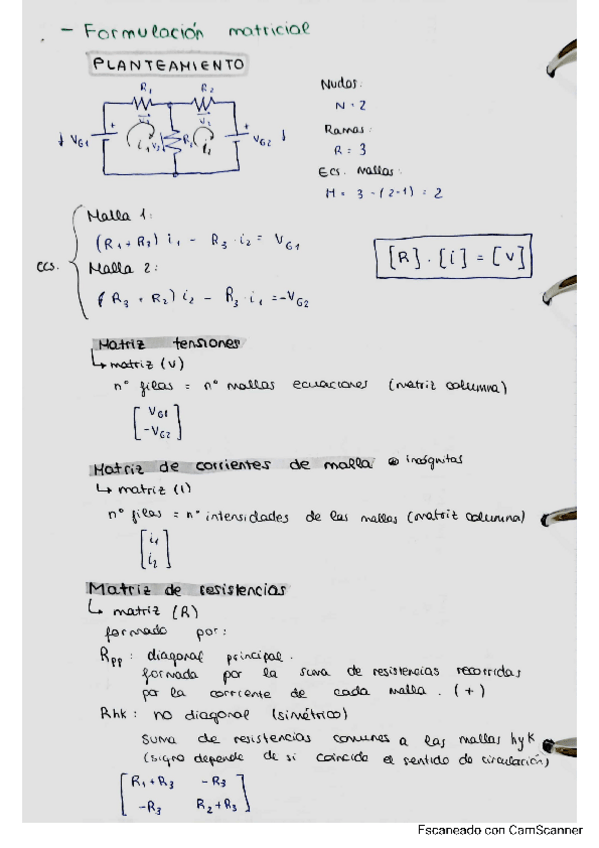 - Formulación matricial
PLANTEAMIENTO
R₁ R₂
↓ VG1 + v₁ i₁ v₃ R₃ v₂ i₂ + VG2 ↓
Nudos:
N = 2
Ramas:
R = 3
Ecs. Mallas:
M = 3 - (2-1) = 2
ecs.
Malla 1:
(R₁ + R₂) i₁ - R₃ · i₂ = VG1
Malla 2:
(R₃ + R₂) i₂ - R₃ · i₁ = -VG2
[R] · [i] = [V]
Matriz tensiones
↳ matriz (V)
nº filas = nº mallas ecuaciones (matriz columna)
[VG1
-VG2]
Matriz de corrientes de malla incógnitas
↳ matriz (I)
nº filas = nº intensidades de las mallas (matriz columna)
[i₁
i₂]
Matriz de resistencias
↳ matriz (R)
formado por:
Rpp: diagonal principal.
formada por la suma de resistencias recorridas
por la corriente de cada malla. (+)
Rhk: no diagonal (simétrico)
suma de resistencias comunes a las mallas h y k
(signo depende de si coincide el sentido de circulación)
[R₁ + R₃ -R₃
-R₃ R₂ + R₃]
Escaneado con CamScanner